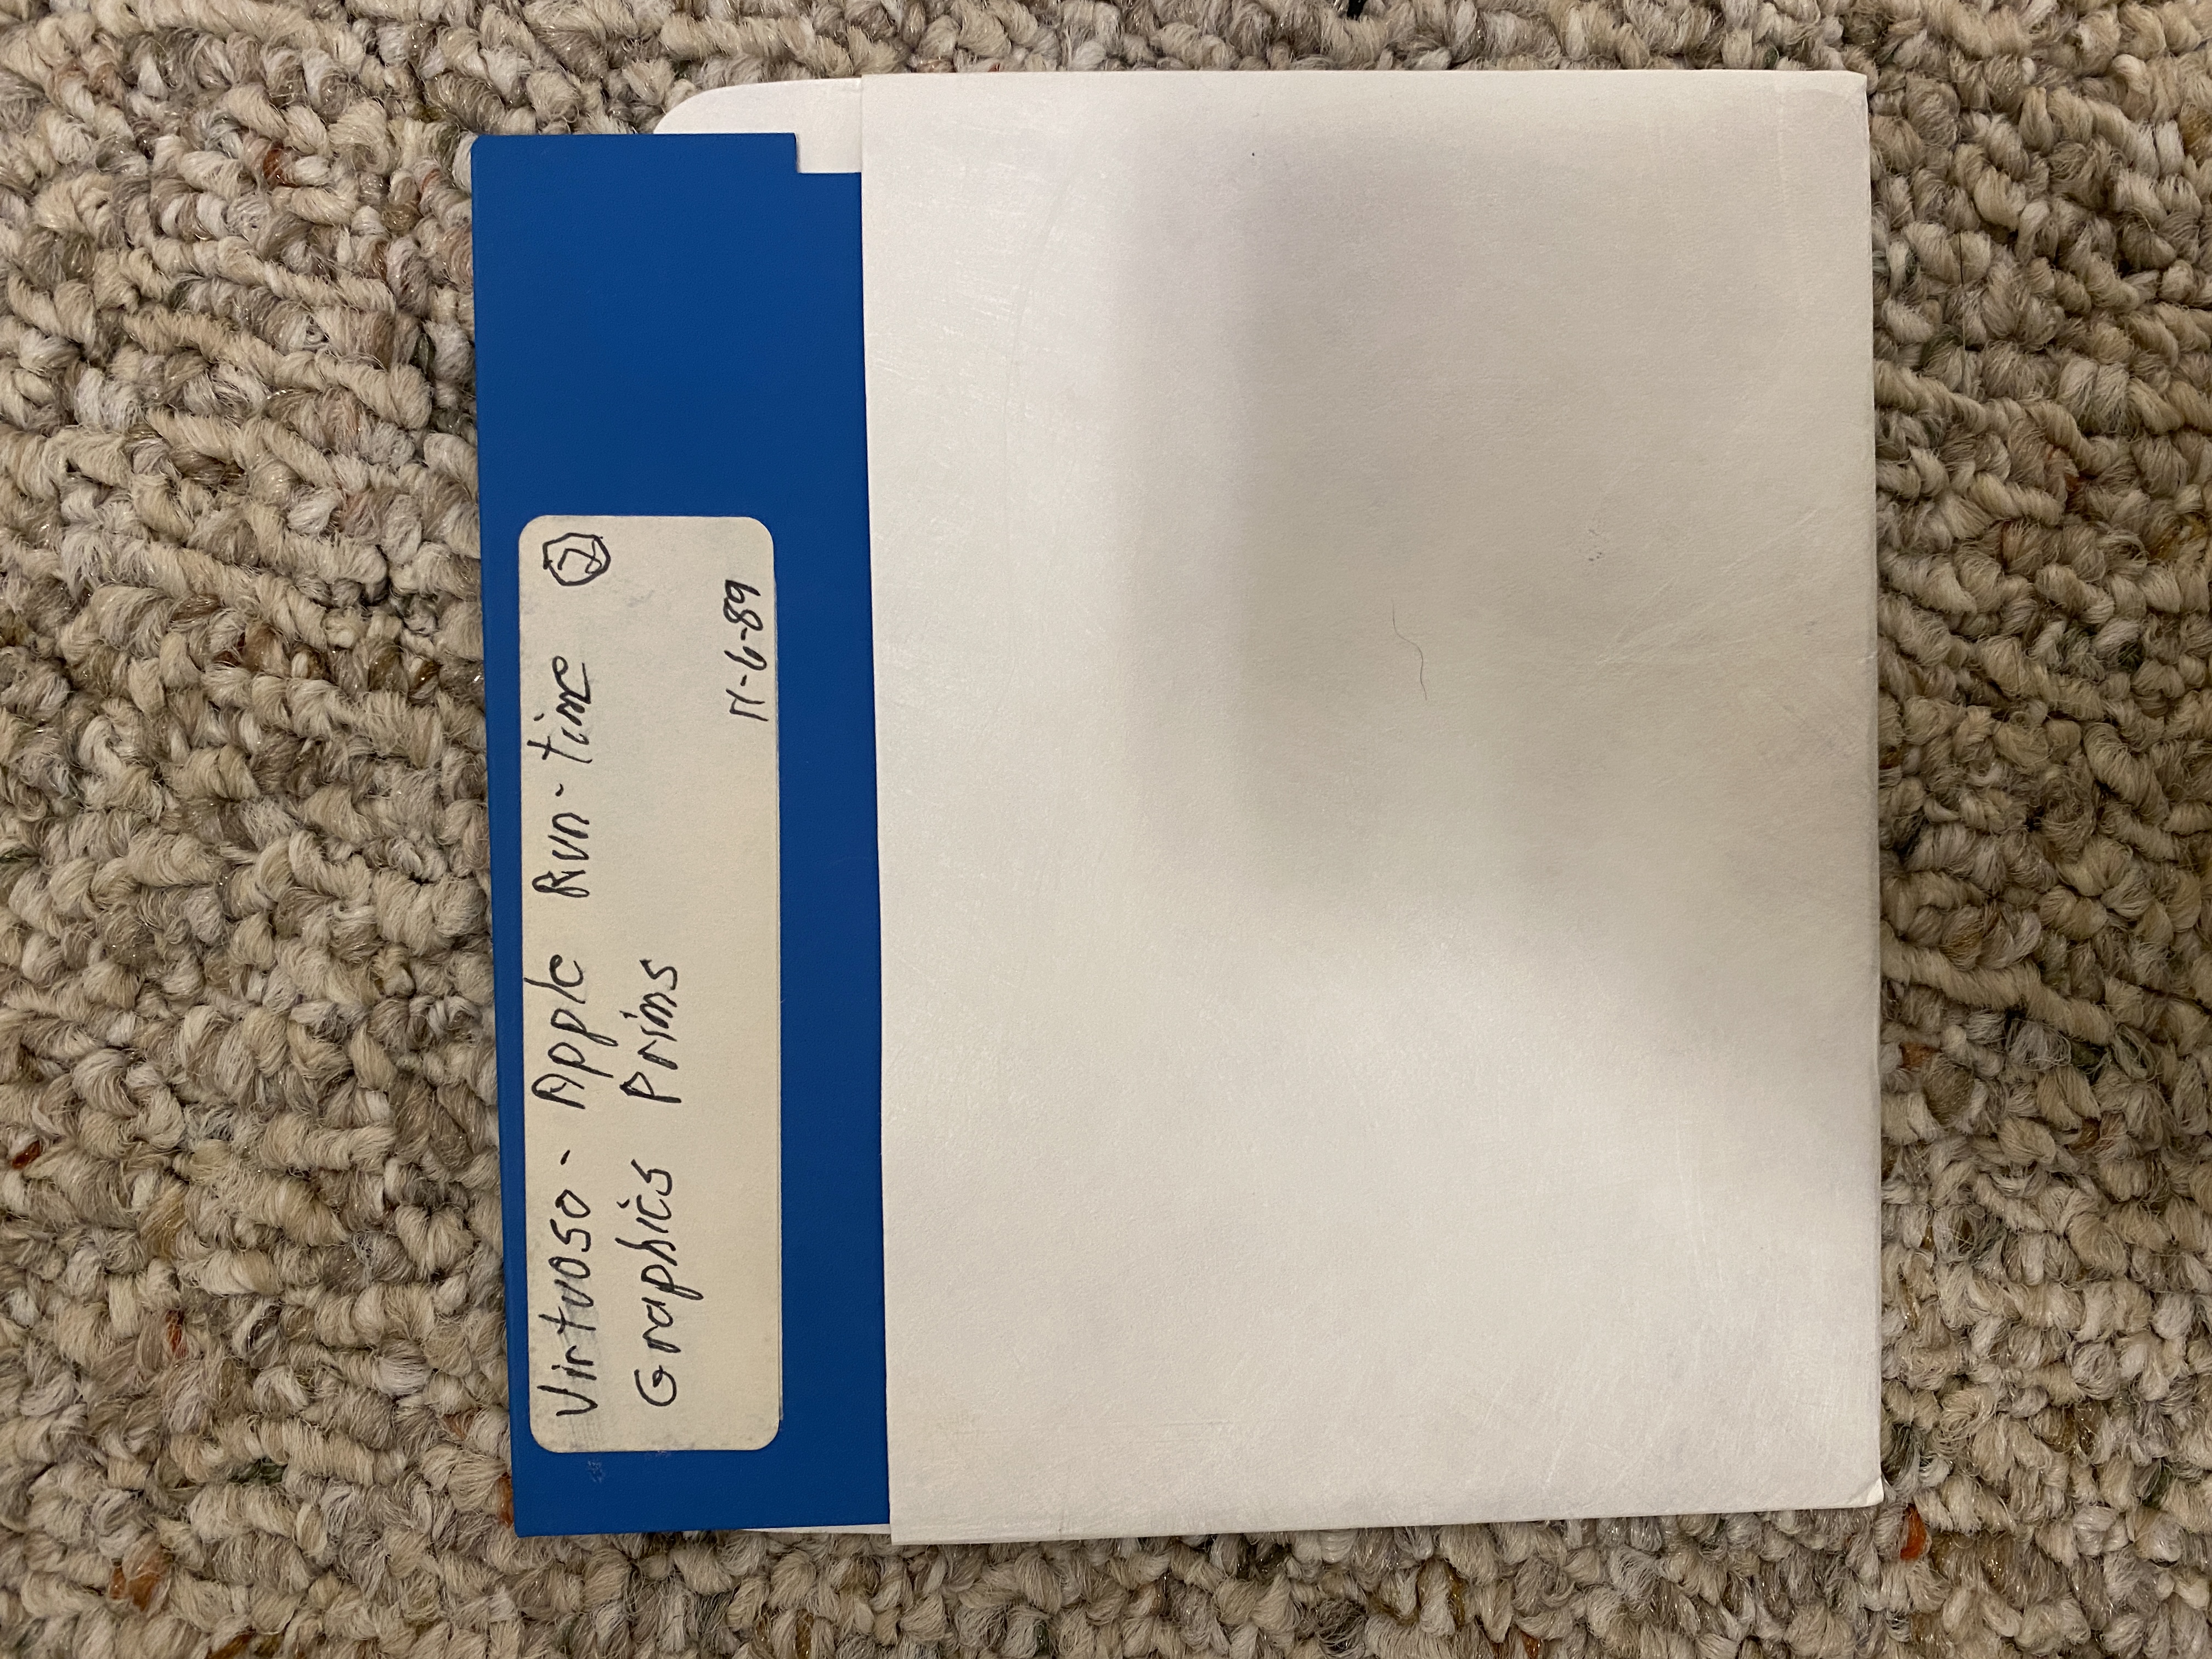 Virtuoso - Apple Run-time ②
Graphics Prims
11-6-89